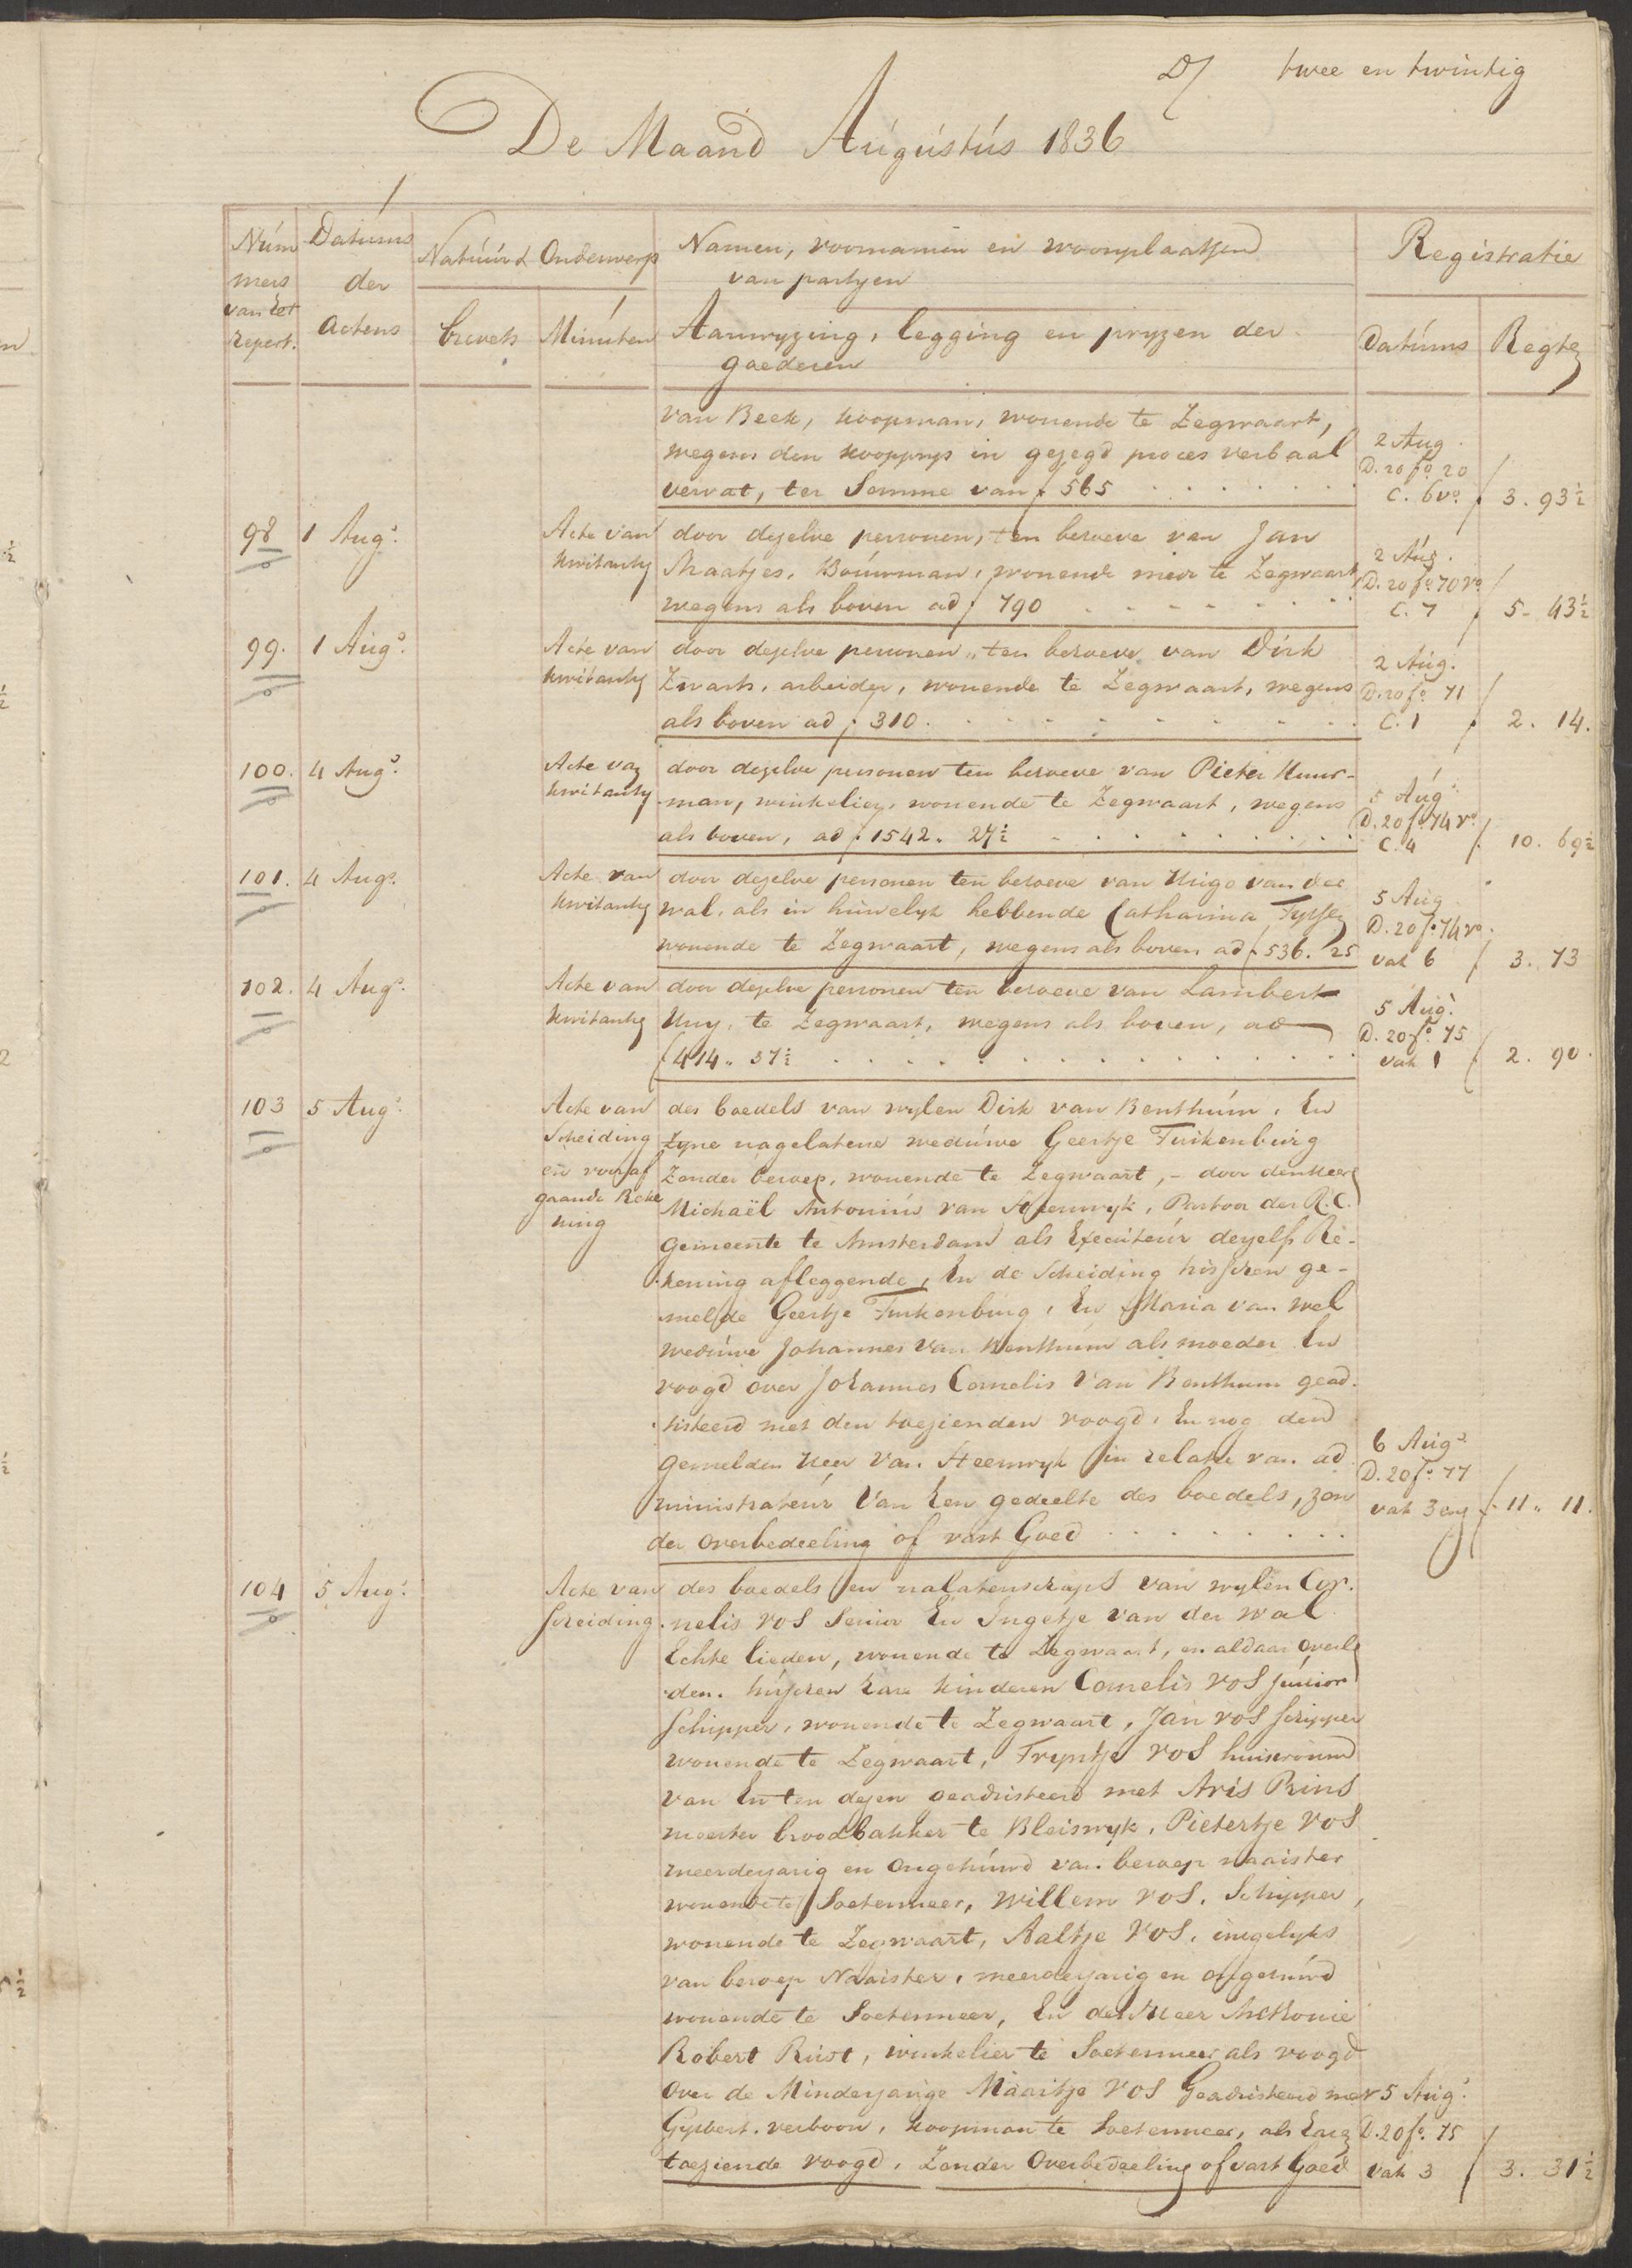 twee en twintig
De Maand Augustus 1836
Num Datums Natuur & Onderwerp Namen, voornamen en woonplaatsen Registratie
mers der van partyen
van het
repert. Actens brevets Minuten Aanwyzing, legging en pryzen der Datums Regten
goederen
van Beek, koopman, wonende te Zegwaart,
wegens den koopprys in gezegd proces verbaal 2 Aug.
D. 20 fo 20
vervat, ter Somme van f 565 C. 6 vo. f 3. 93½
98 1 Augs. Acte van door dezelve personen, ten behoeve van Jan
kwitantie Maatjes, Bouwman, wonende mede te Zegwaart 2 Aug.
D. 20 fo 70 vo
wegens als boven ad f 790 C. 7 f 5 - 43½
99. 1 Augs. Acte van door dezelve personen, ten behoeve van Dirk
kwitantie Zwarts, arbeider, wonende te Zegwaart, wegens 2 Aug.
D. 20 fo 71
als boven ad f 310. C. 1 f 2. 14.
100. 4 Augs. Acte van door dezelve personen ten behoeve van Pieter Huur-
kwitantie man, winkelier, wonende te Zegwaart, wegens 5 Augs.
D. 20 fo 74 vo.
als boven, ad f 1542. 27½ C. 4 f. 10. 69½
101. 4 Augs. Acte van door dezelve personen ten behoeve van Hugo van der
kwitantie wal, als in huwelyk hebbende Catharina 5 Aug
D. 20 fo 74 vo.
wonende te Zegwaart, wegens als boven ad f 536. 25 vak 6 f 3. 73
102. 4 Augs. Acte van door dezelve personen ten behoeve van Lambert
kwitantie te Zegwaart, wegens als boven, ad 5 Augs.
D. 20 fo. 75
f 414. 37½ vak 1 f 2. 90.
103 5 Augs. Acte van des boedels van wylen Dirk van Benthum, En
Scheiding Zyne nagelatene weduwe Geertje Turkenburg
en vooraf Zonder beroep, wonende te Zegwaart, - door den Heer
gaande Reke Michaël Antonius van Steenwyk, Pastoor der R. C.
ning
Gemeente te Amsterdam als Executeur dezelfs Re-
kening afleggende, En de Scheiding tusschen ge-
melde Geertje Turkenburg, En Maria van Wel
weduwe Johannes van Benthum als moeder En
voogd over Johannes Cornelis van Benthum gead-
sisteerd met den toezienden voogd, En nog den
gemelden Heer van Steenwyk in relatie van ad 6 Augs.
D. 20 fo. 77
ministrateur van Een gedeelte des boedels, zon vak 3 env f 11. 11.
der overbedeeling of vast Goed
104 5 Augs. Acte van des boedels en nalatenschaps van wylen Cor-
scheiding. nelis Vos Senior En Ingetje van der Wal
Echte lieden, wonende te Zegwaart, en aldaar overle
den. tusschen hare kinderen Cornelis Vos Junior
Schipper, wonende te Zegwaart, Jan Vos schipper
wonende te Zegwaart, Tryntje Vos huisvrouw
van En ten dezen geadsisteerd met Aris Prins
meester broodbakker te Bleiswyk, Pietertje Vos
meerderjarig en ongehuwd van beroep naaister
wonende te Soetermeer, Willem Vos, Schipper,
wonende te Zegwaart, Aaltje Vos, insgelyks
van beroep Naaister, meerderjarig en ongehuwd
wonende te Soetermeer, En den Heer Anthonie
Robert Rust, winkelier te Soetermeer als voogd
over de Minderjarige Maartje Vos Geadsisteerd met 5 Augs.
Gysbert Verboon, koopman te Soetermeer, als haar D. 20 fo. 75
toeziende voogd, Zonder Overbedeeling of vast Goed vak 3 f 3. 31½